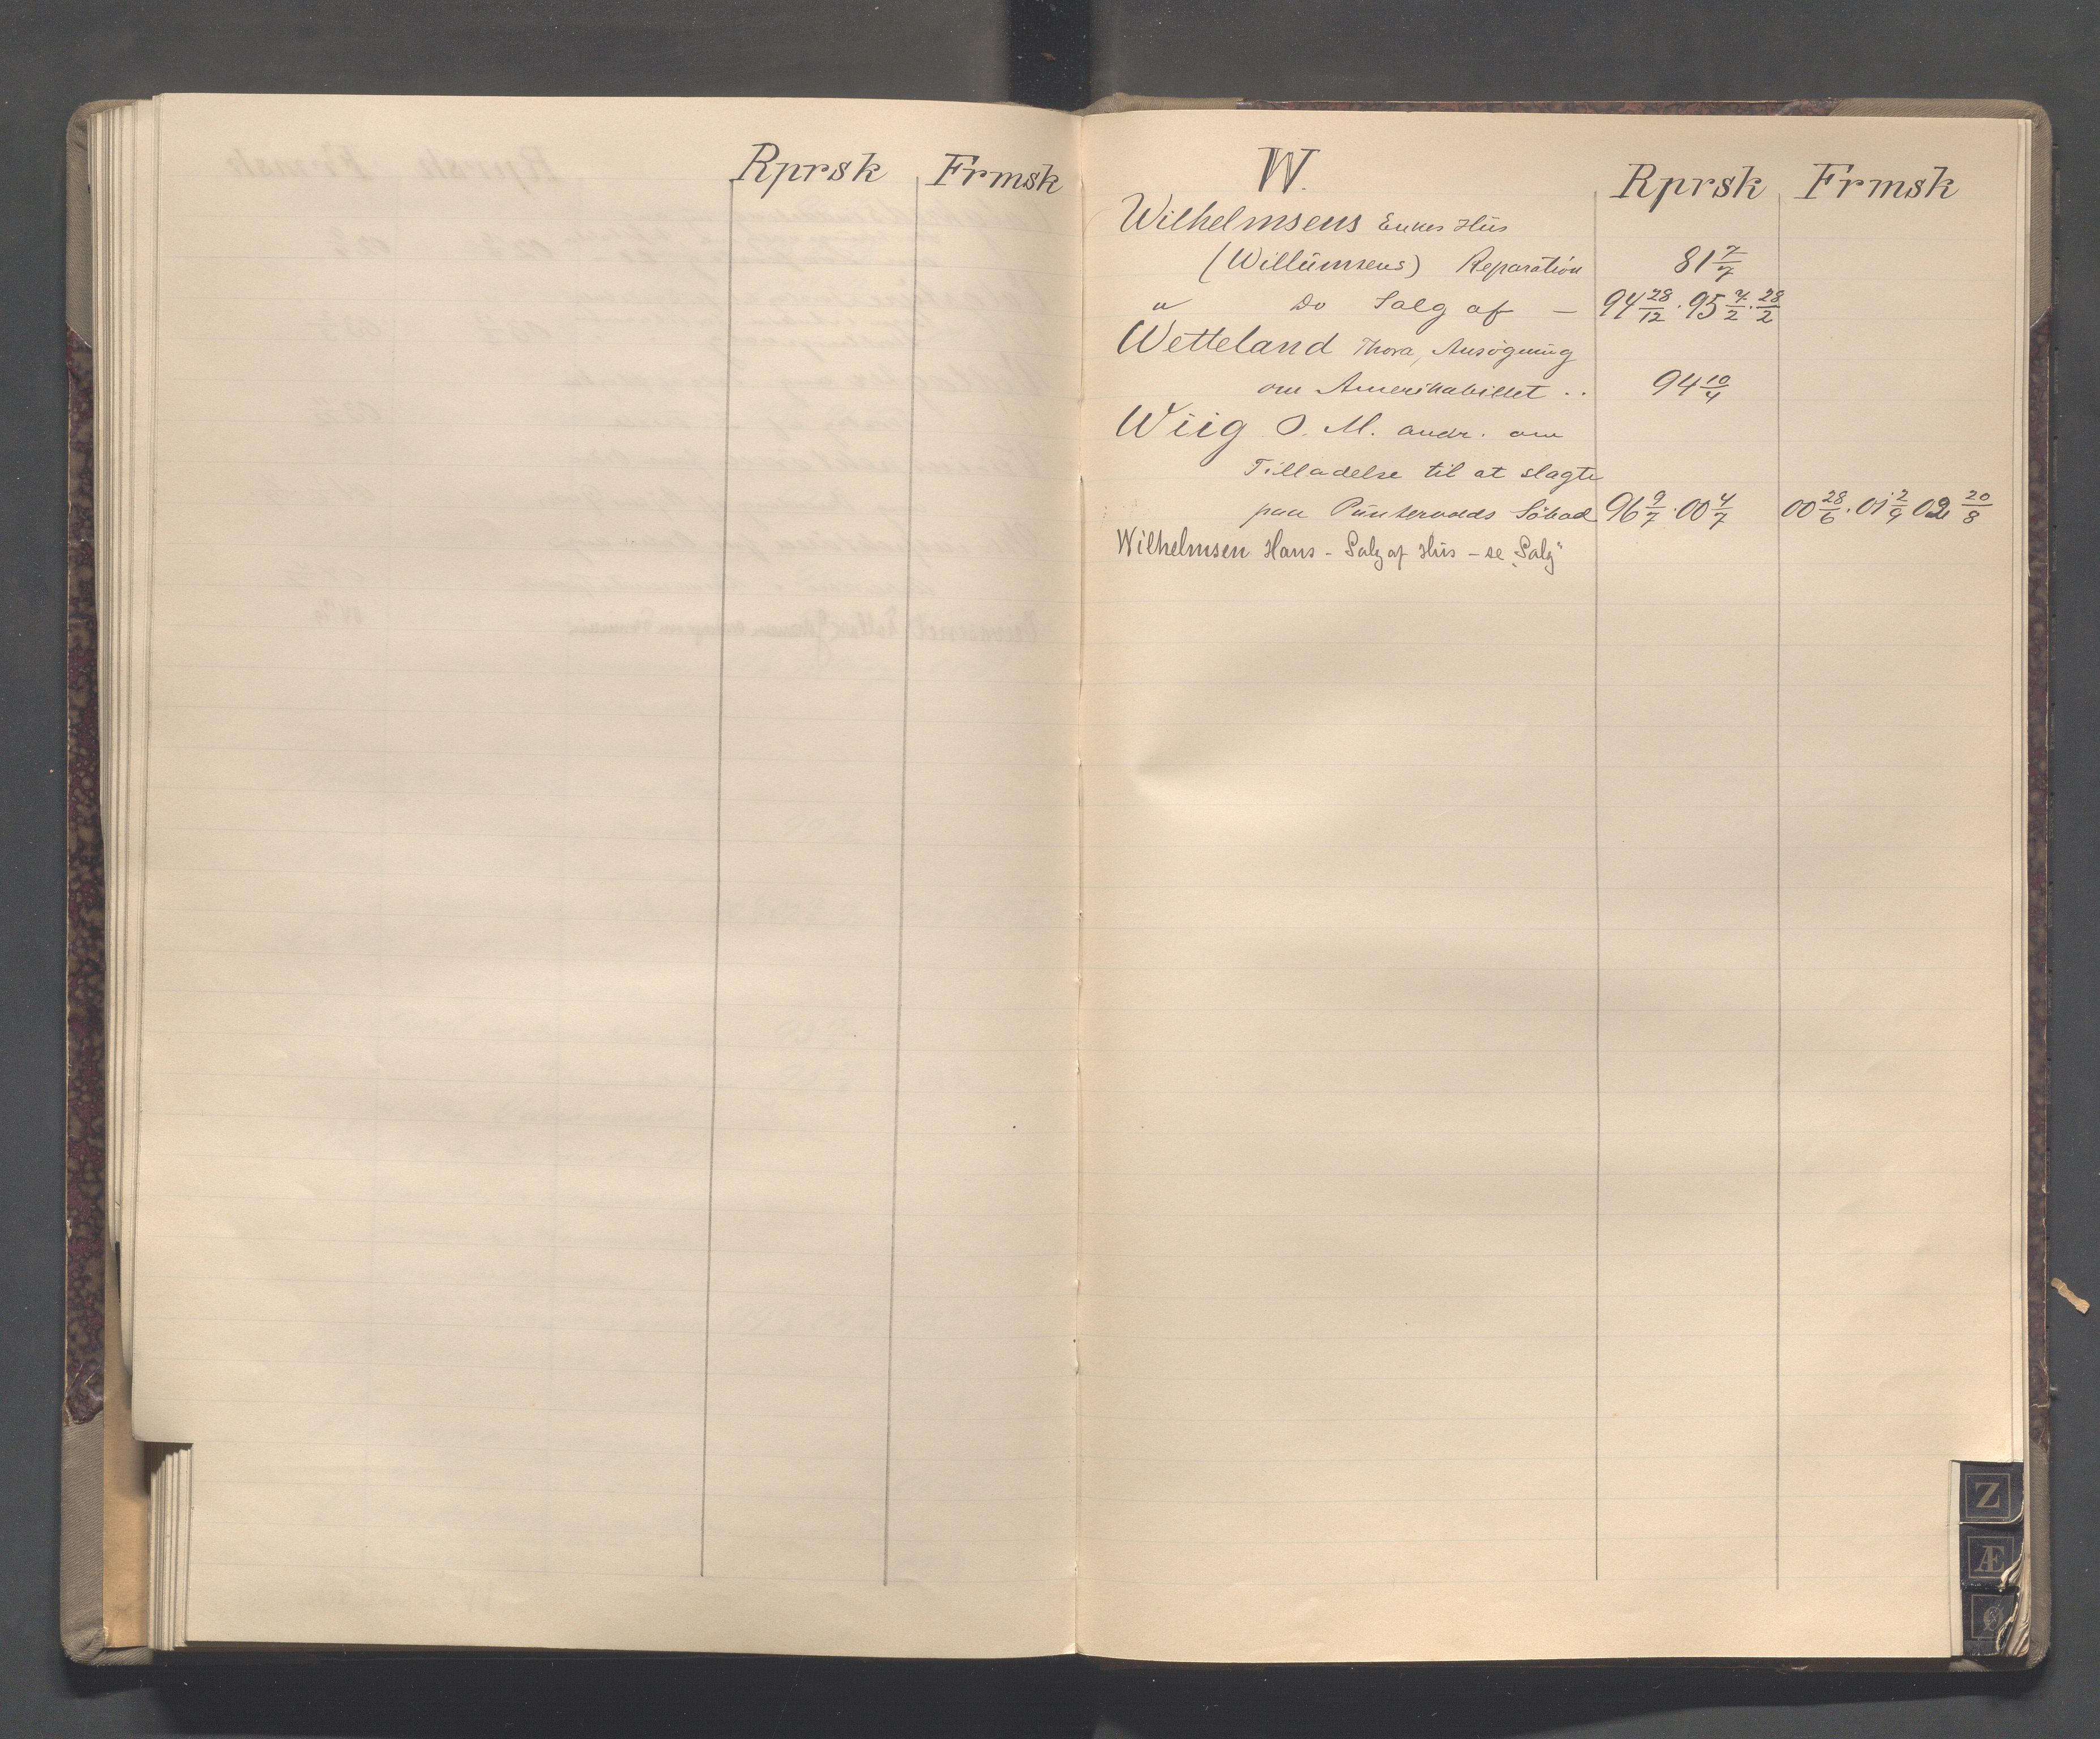 Rprsk Frmsk
W. Rprsk Frmsk
Wilhelmsens Enkes Hus
(Willumsens) Reparation 81 7/7
" Do Salg af — 94 28/12 · 95 7/2 · 28/2
Wetteland Thora, Ansøgning
om Amerikabillet .. 94 10/4
Wiig O. M. andr. om
Tilladelse til at slagte
paa Søbod 96 9/7 · 00 4/7 00 28/6 · 01 2/9 02 20/8
Wilhelmsen Hans – Salg af Hus – se „Salg"
Z
Æ
Ø